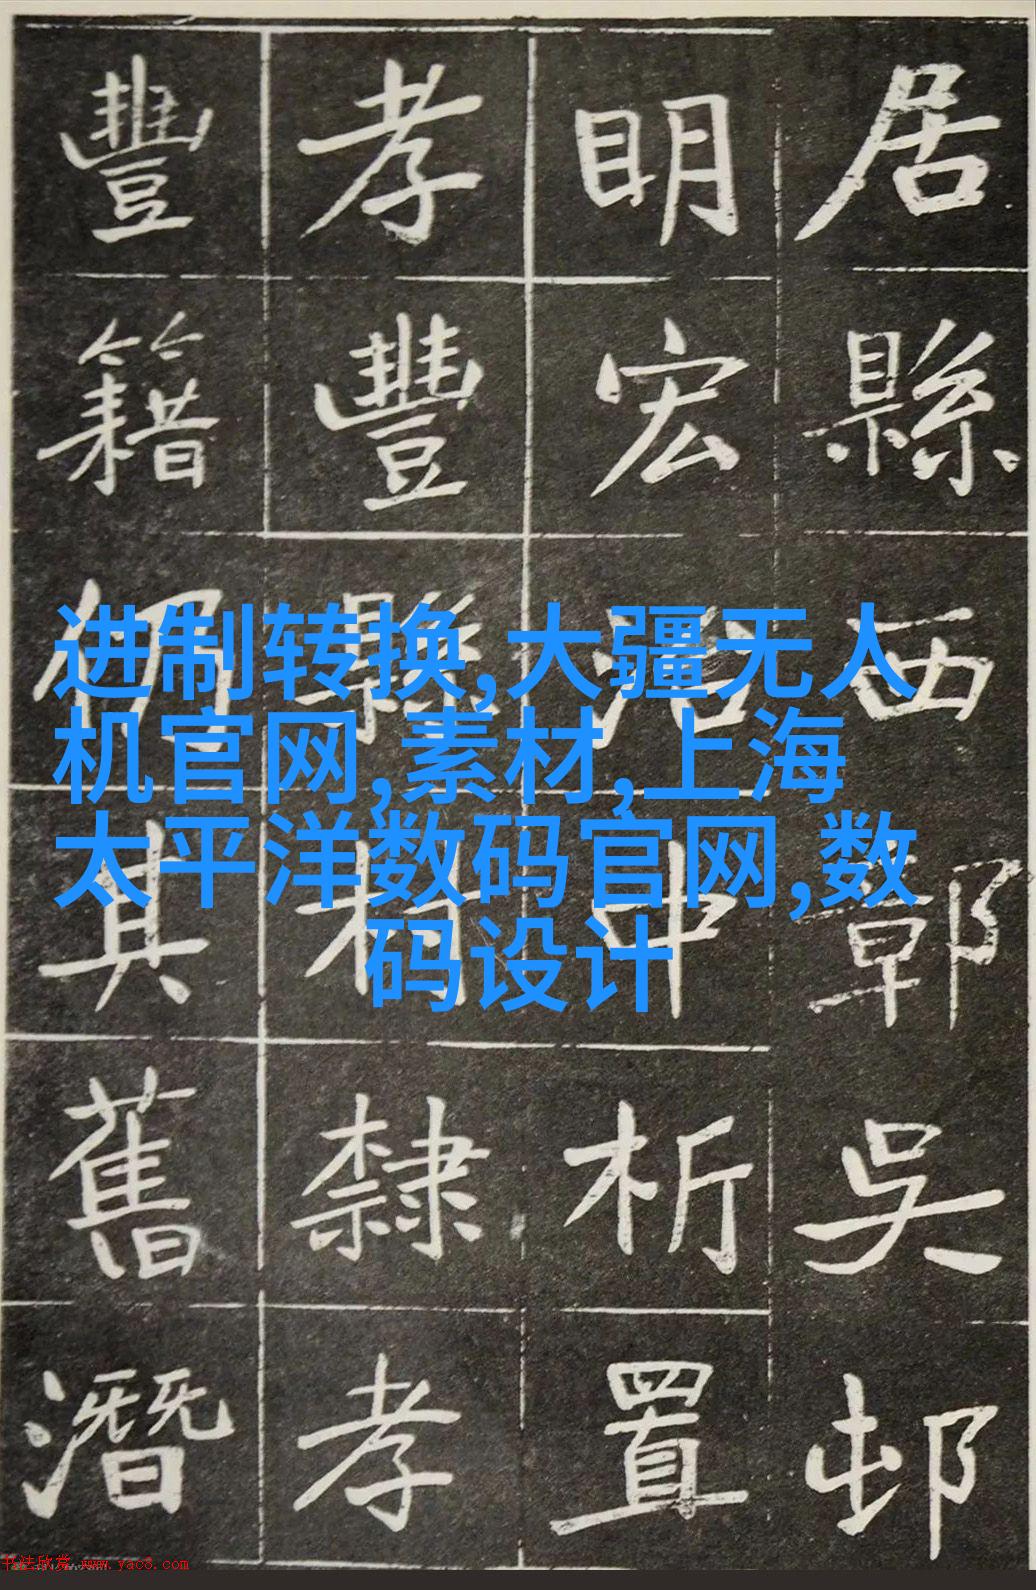 居縣西鄣吳邨
明宏治中析置
孝豐縣村隸孝
豐籍仍其舊潛
进制转换,大疆无人
机官网,素材,上海
太平洋数码官网,数
码设计
书法欣赏 www.yac8.com